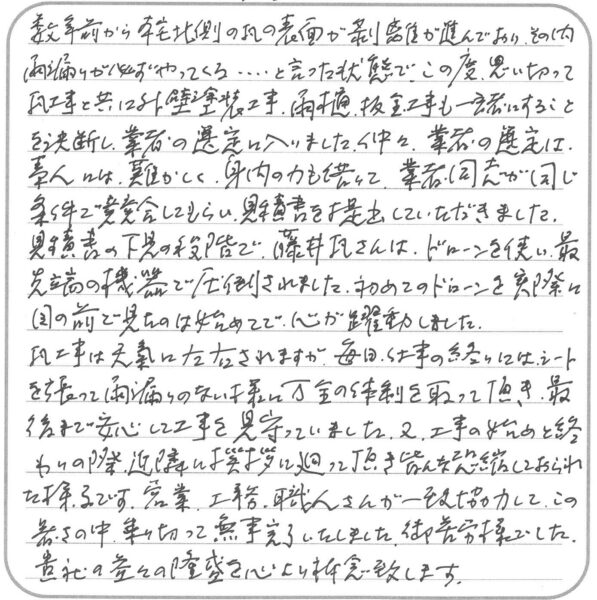 数年前から本宅北側の瓦の表面が剥離が進んでおり、その内
雨漏りが必ずやってくる‥‥と言った状態で、この度、思い切って
瓦工事と共に外壁塗装工事、雨樋、板金工事も一諸にすること
を決断し、業者の選定に入りました。仲々、業者の選定は、
素人には、難かしく、身内の力も借りて、業者同志が同じ
条件で競合してもらい、見積書を提出していただきました。
見積書の下見の段階で、藤井瓦さんは、ドローンを使い、最
先端の機器で圧倒されました。初めてのドローンを実際に
目の前で見たのは始めてで、心が躍動しました。
瓦工事は天氣に左右されますが、毎日、仕事の終りにはシート
を張って雨漏りのない様に万全の体制を取って頂き、最
後まで安心して工事を見守っていました。又、工事の始めと終
わりの際、近隣に挨拶に廻って頂き皆んな恐縮しておられ
た様子です。営業、工務、職人さんが一致協力して、この
暑さの中、乗り切って、無事完了いたしました。御苦労様でした。
貴社の益々の隆盛を心より祈念致します。